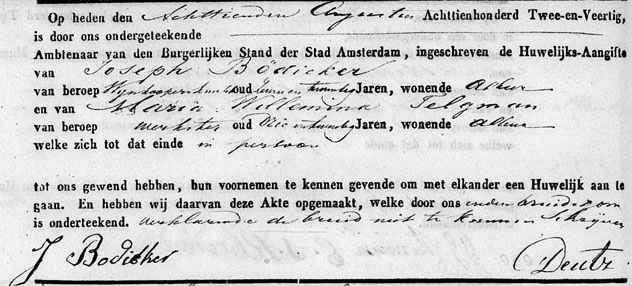 Op heden den Achttienden Augustus Achttienhonderd Twee-en-Veertig,
is door ons ondergeteekende
Ambtenaar van den Burgerlijken Stand der Stad Amsterdam, ingeschreven de Huwelijks-Aangifte
van Joseph Bödicker
van beroep oud Jaren, wonende Alhier
en van Maria Willemina Telgman
van beroep werkster oud Drie en twintig Jaren, wonende Alhier
welke zich tot dat einde in persoon
tot ons gewend hebben, hun voornemen te kennen gevende om met elkander een Huwelijk aan te
gaan. En hebben wij daarvan deze Akte opgemaakt, welke door ons en den bruidegom
is onderteekend. verklarende de bruid niet te kunnen schrijven
J Bödicker Deutz